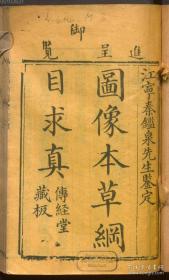 進呈
御
覽
江寧秦鑑泉先生鑒定
圖像本草綱
目求真
傳經堂
藏板